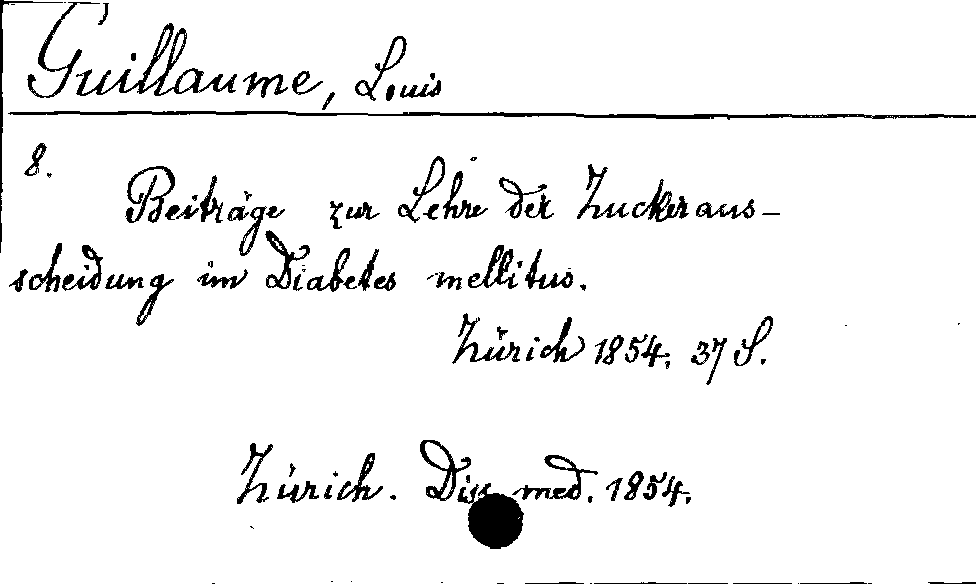 Guillaume, Louis
8.
Beiträge zur Lehre der Zuckeraus-
scheidung im Diabetes mellitus.
Zürich 1854. 37 S.
Zürich. Diss. med. 1854.